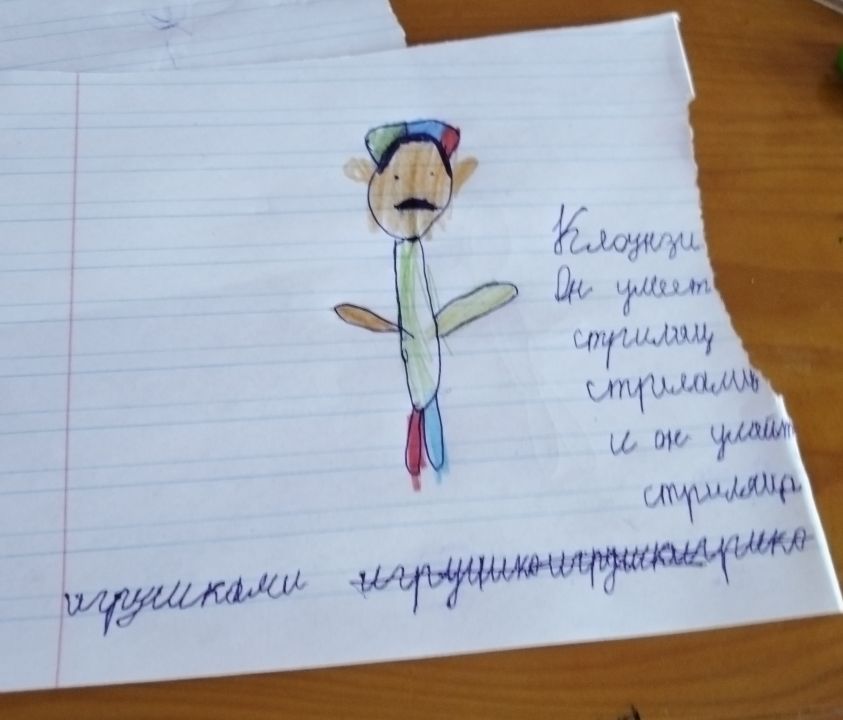 Клоунзи
Он умеет
стриляц
стрилами
и он умайт
стриляцы
игрушками игрушкоигрушкиигрико